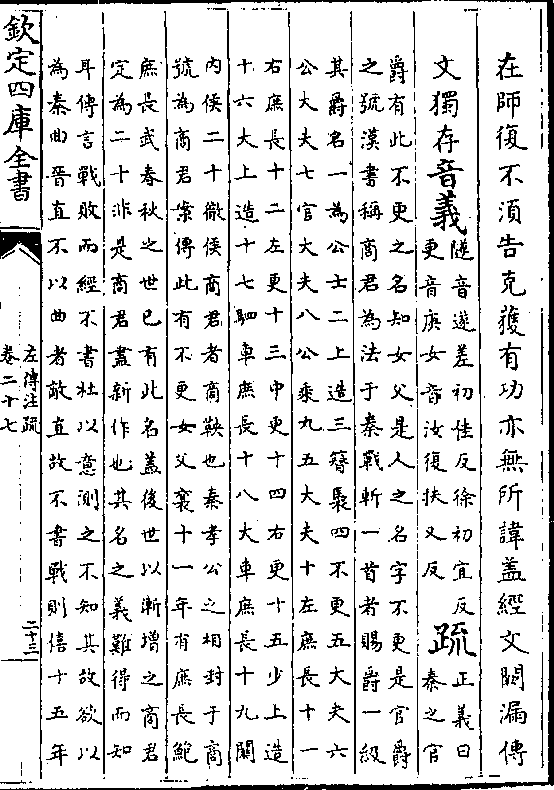 在師復不須告克獲有功亦無所諱蓋經文闕漏傳
文獨存音義隧音遂差初佳反徐初宜反
更音庚女音汝復扶又反疏正義曰
秦之官
爵有此不更之名知女父是人之名字不更是官爵
之號漢書稱商君為法于秦戰斬一首者賜爵一級
其爵名一為公士二上造三簪裊四不更五大夫六
公大夫七官大夫八公乘九五大夫十左庶長十一
右庶長十二左更十三中更十四右更十五少上造
十六大上造十七駟車庶長十八大車庶長十九關
內侯二十徹侯商君者商鞅也秦孝公之相封于商
號為商君案傳此有不更女父襄十一年有庶長鮑
庶長武春秋之世已有此名蓋後世以漸增之商君
定為二十非是商君盡新作也其名之義難得而知
耳傳言戰敗而經不書杜以意測之不知其故欲以
為秦曲晉直不以曲者敵直故不書戰則僖十五年
欽定四庫全書
左傳注疏
卷二十七
二十三